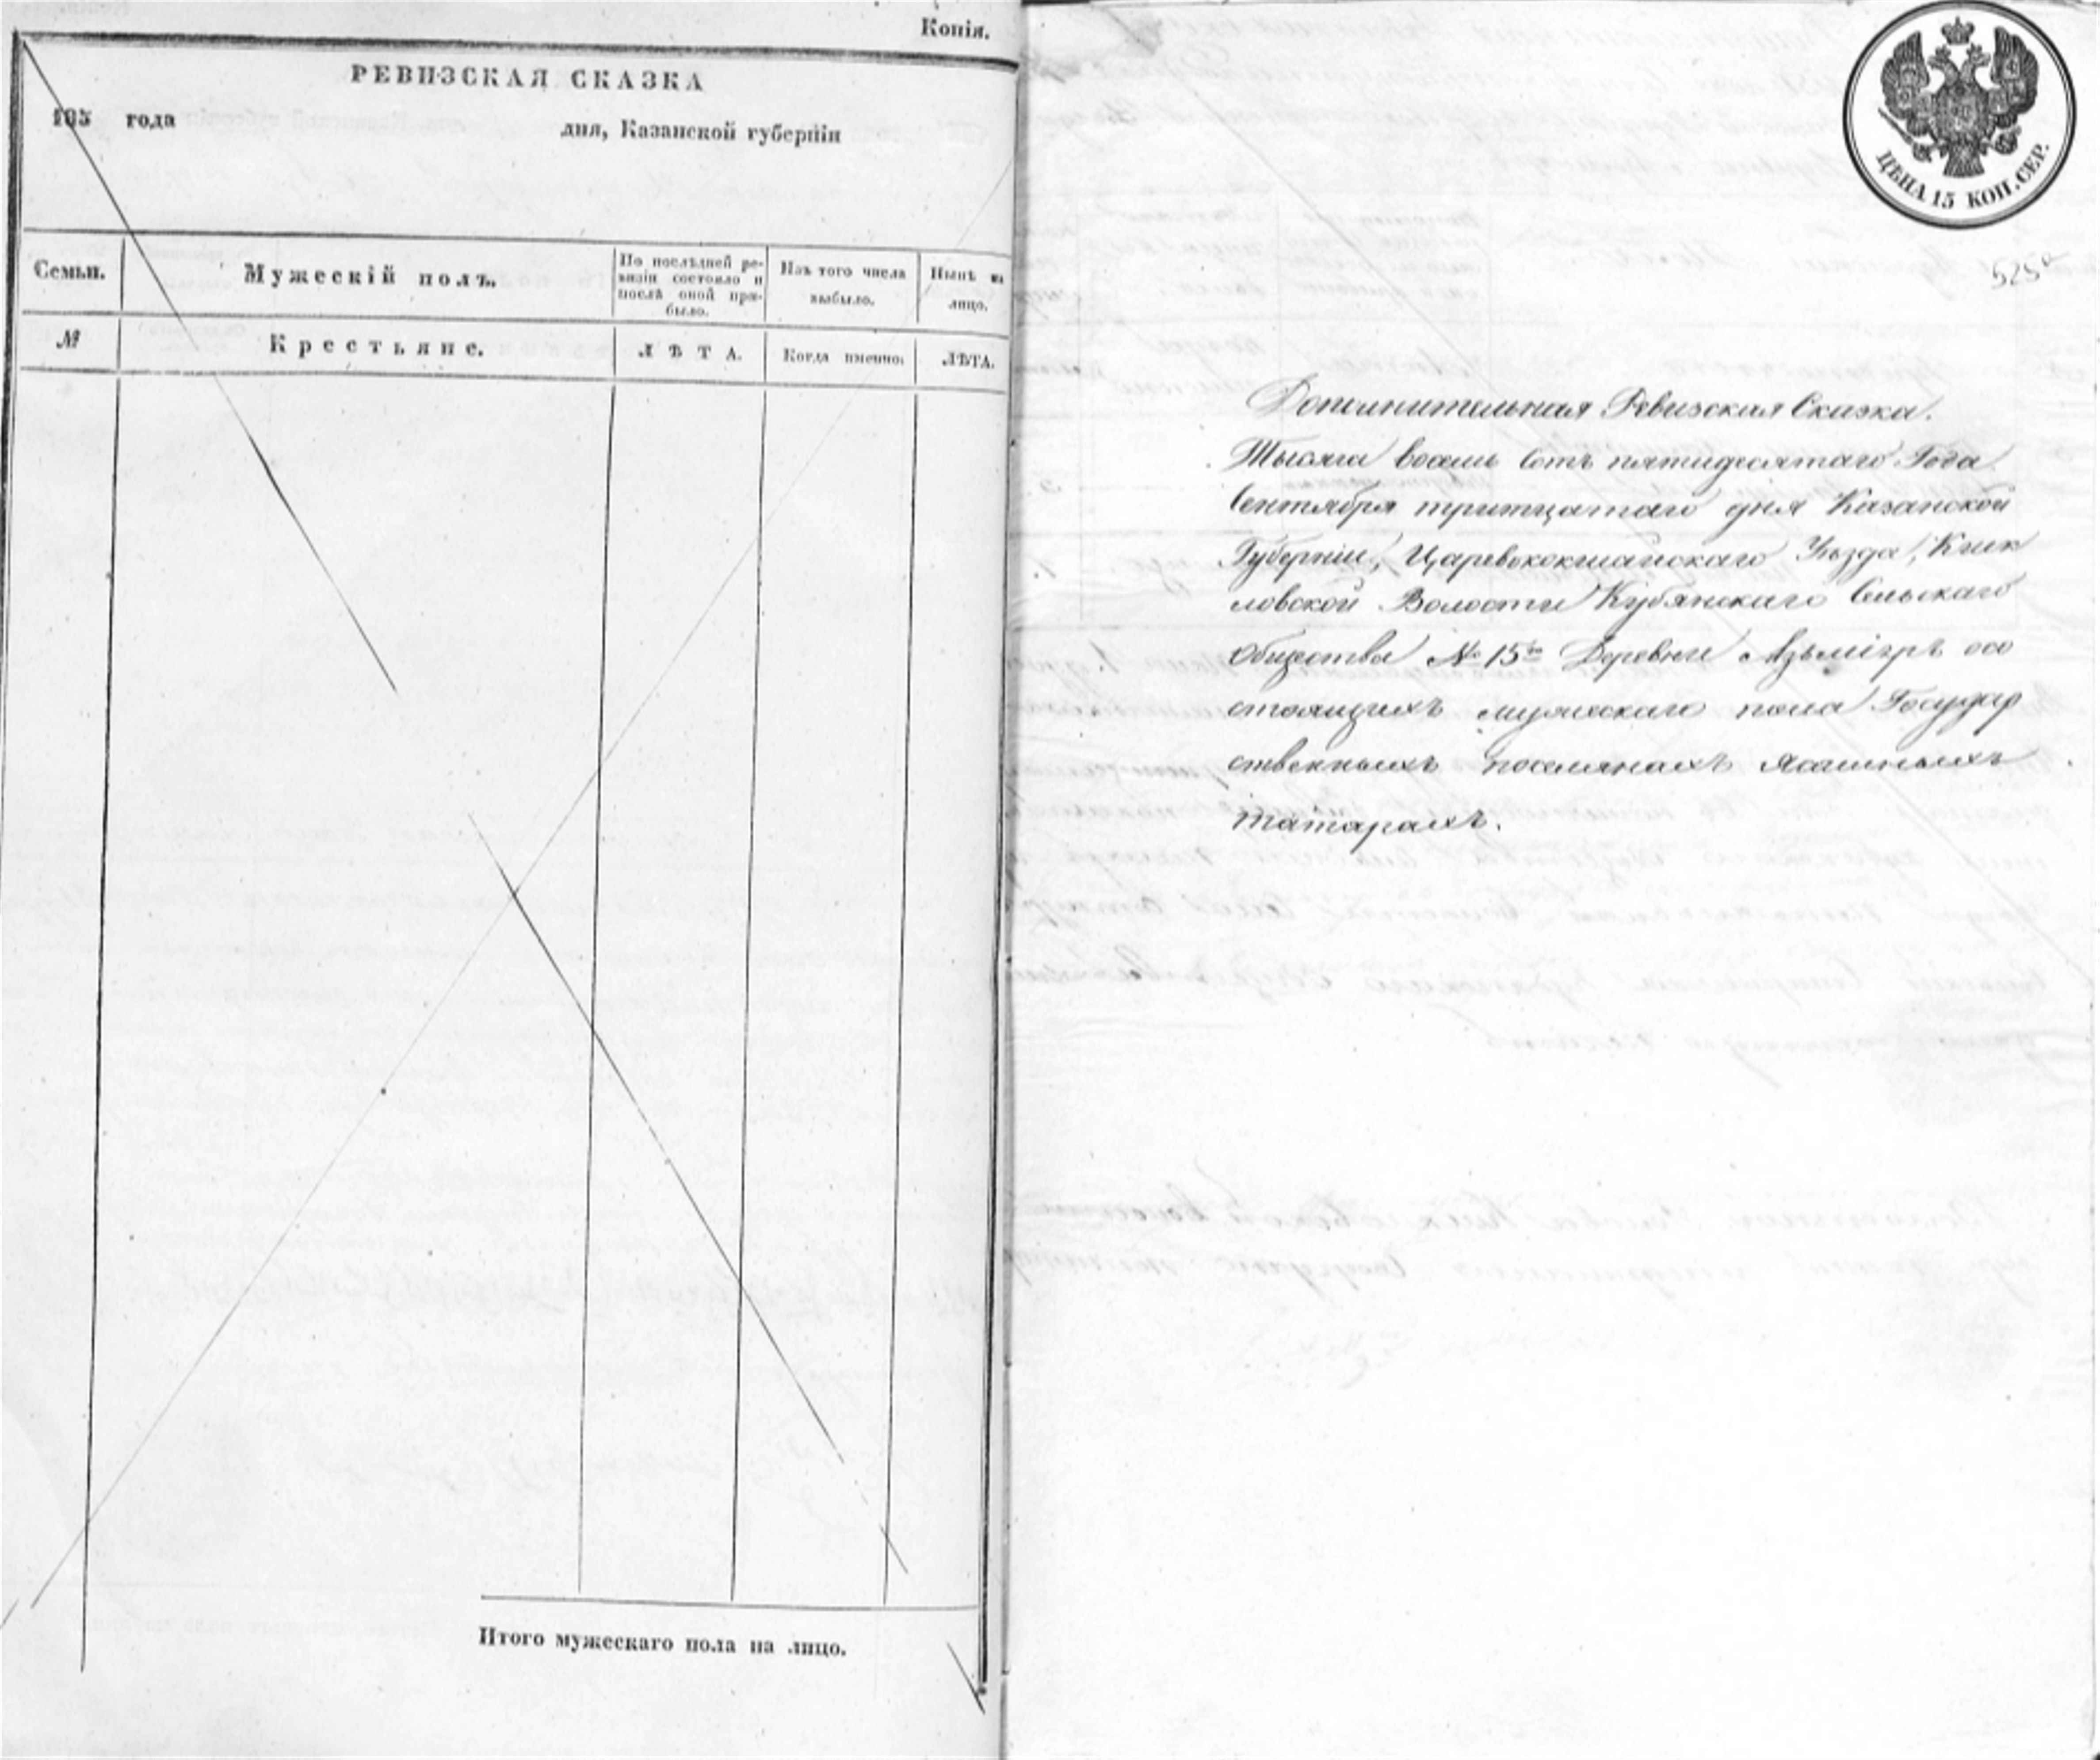 Копія.
РЕВИЗСКАЯ СКАЗКА
185 года дня, Казанской губерніи
Семьи. Мужескій полъ. По послѣдней ре-
визіи состояло и
послѣ оной при-
было. Изъ того числа
выбыло. Нынѣ на
лицо.
№ Крестьяне. ЛѢТА. Когда именно. ЛѢТА.
Итого мужескаго пола на лицо.
ЦѢНА 15 КОП. СЕР.
525
Дополнительная Ревизская Сказка.
Тысяча восемь сотъ пятидесятаго Года
Сентября тритцатаго дня Казанской
Губерніи, Царевококшайскаго Уѣзда, Кшк
ловской Волости Кубянскаго Сельскаго
Общества № 15 Деревни
стоящихъ мужескаго пола Государ
ственныхъ поселянахъ Ясашныхъ
татарахъ.